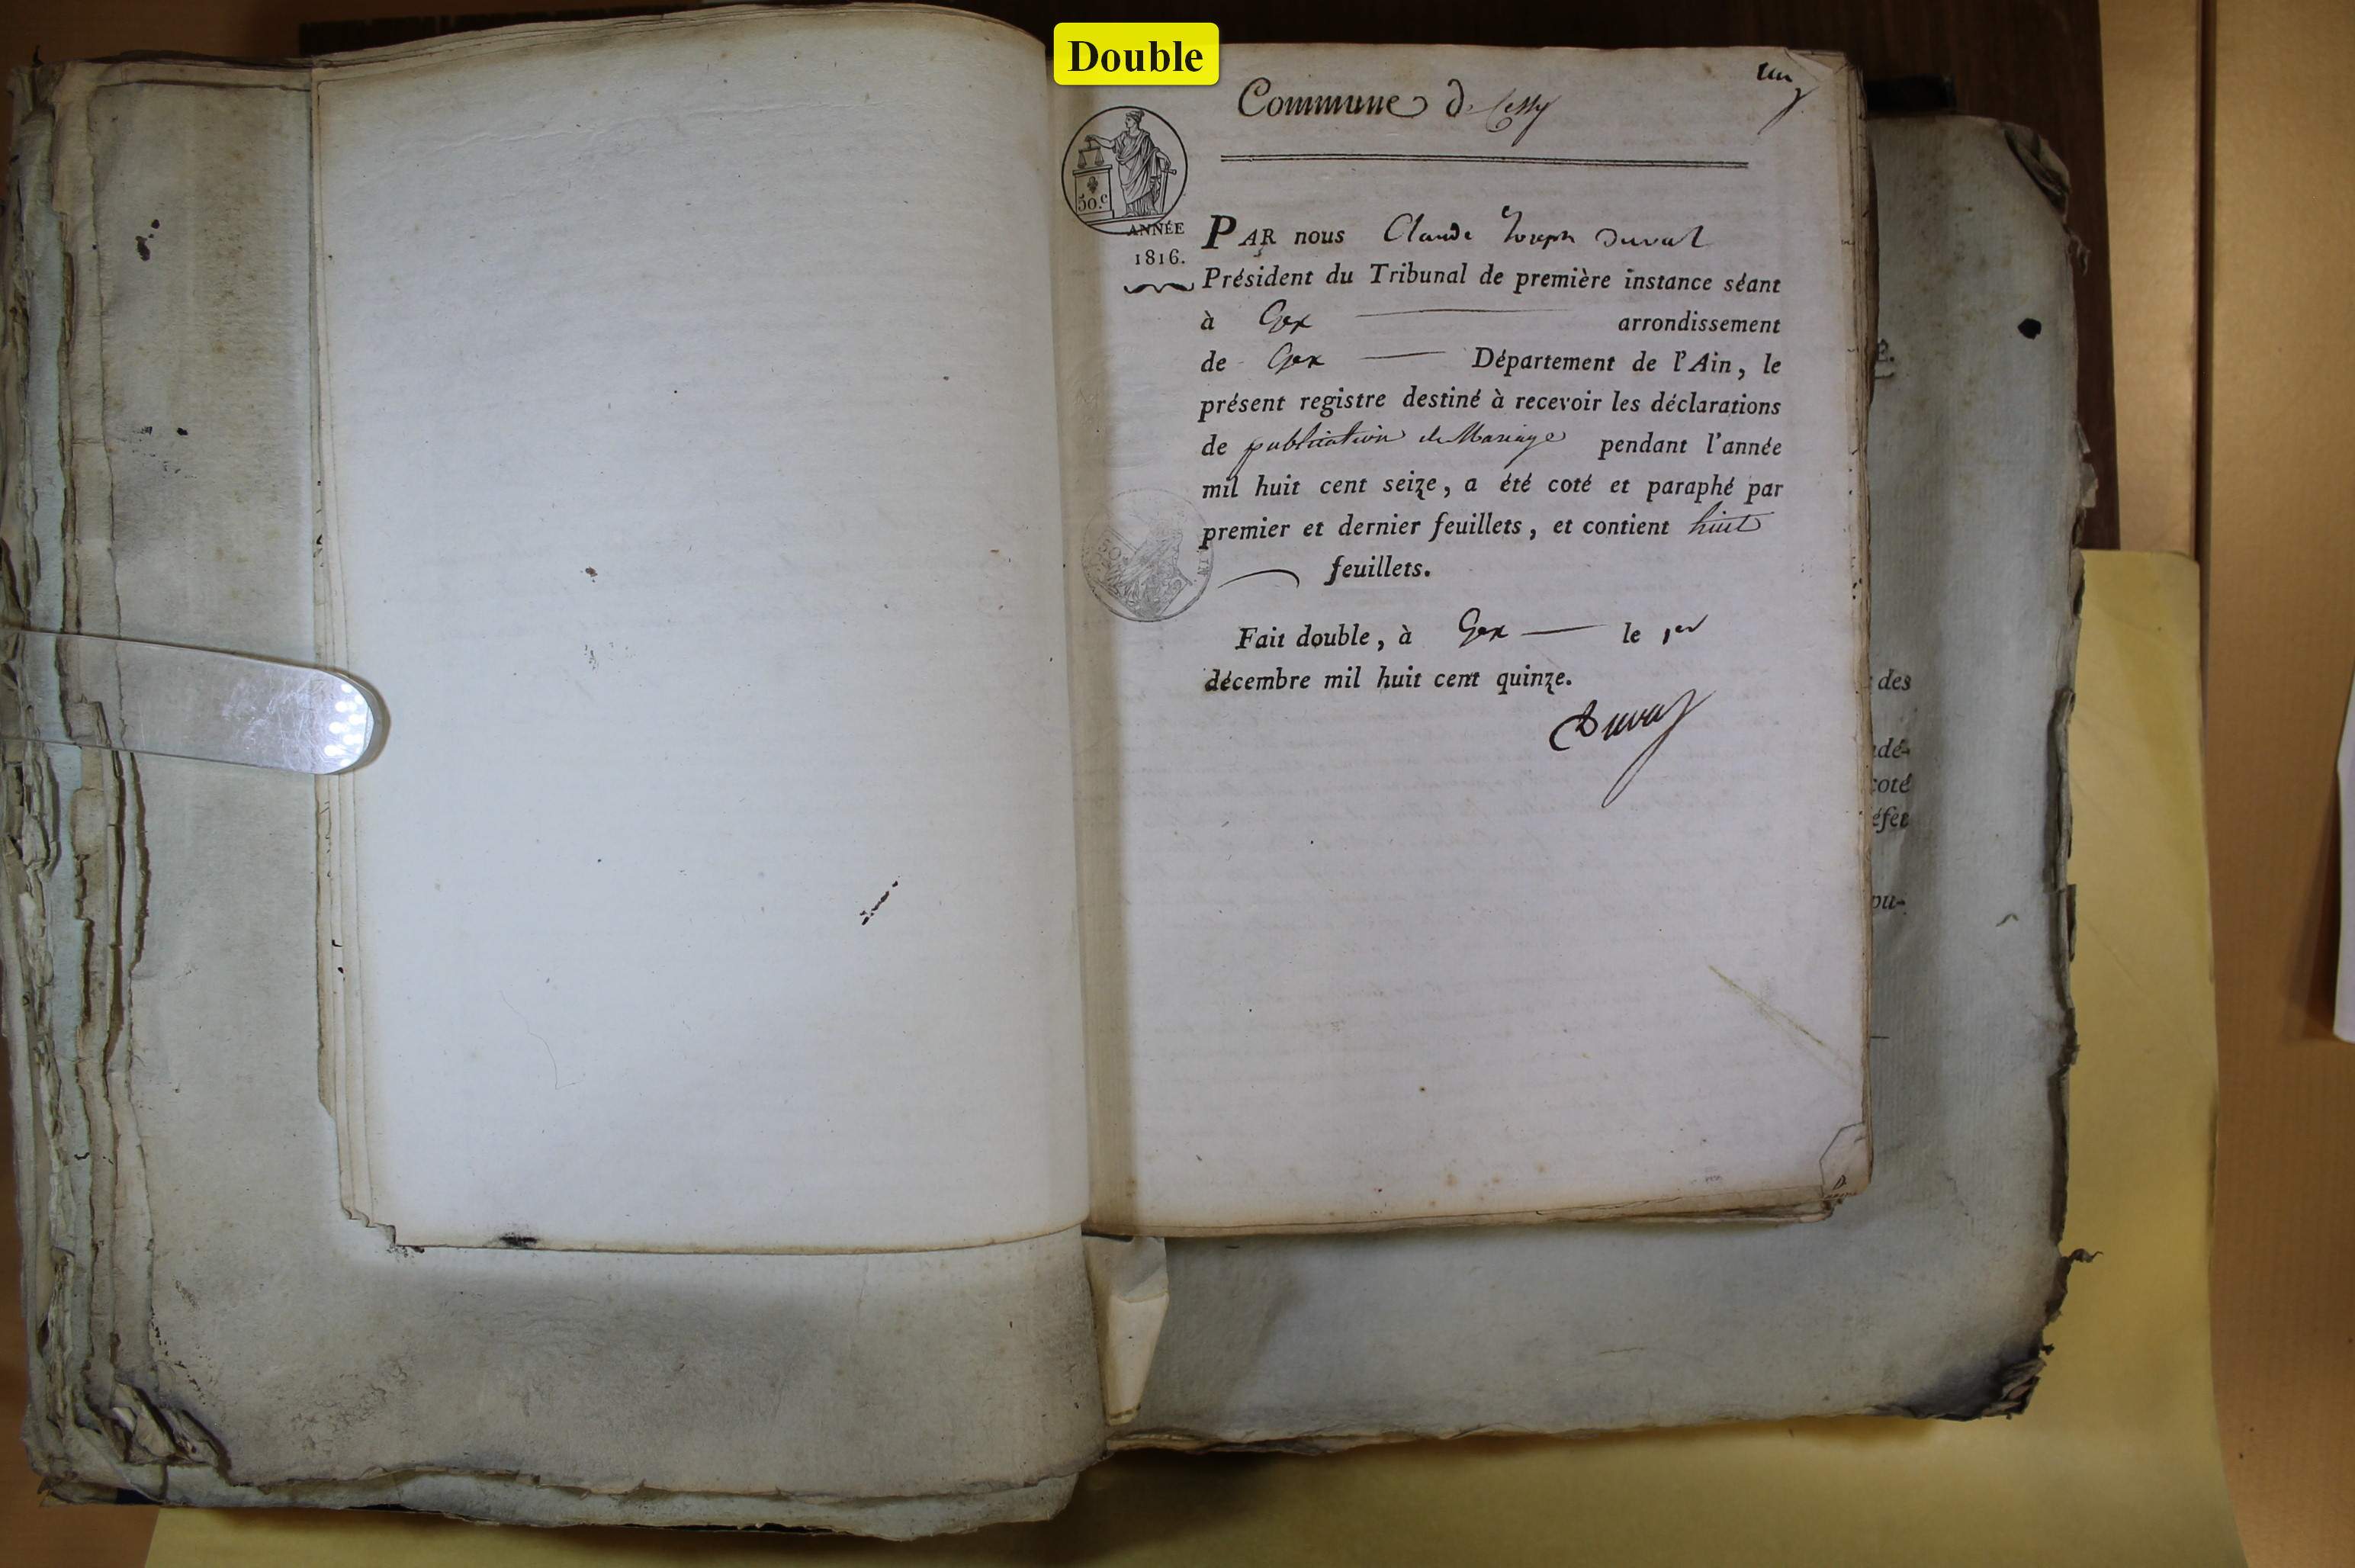 Double
un
Commune de Cessy
50.c
ANNÉE
1816.
PAR nous Claude Joseph Duval
Président du Tribunal de première instance séant
à Gex arrondissement
de Gex Département de l'Ain, le
présent registre destiné à recevoir les déclarations
de publication de Mariage pendant l'année
mil huit cent seize, a été coté et paraphé par
premier et dernier feuillets, et contient huit
feuillets.
Fait double, à Gex le 1er
décembre mil huit cent quinze.
Duval
des
dé-
coté
éfet
pu-